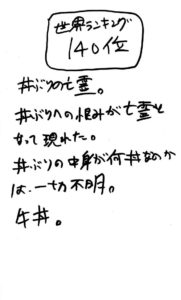 世界ランキング
140位
丼ぶりの亡霊。
丼ぶりへの恨みが亡霊と
なって現れた。
丼ぶりの中身が何丼なのか
は、一切不明。
牛丼。